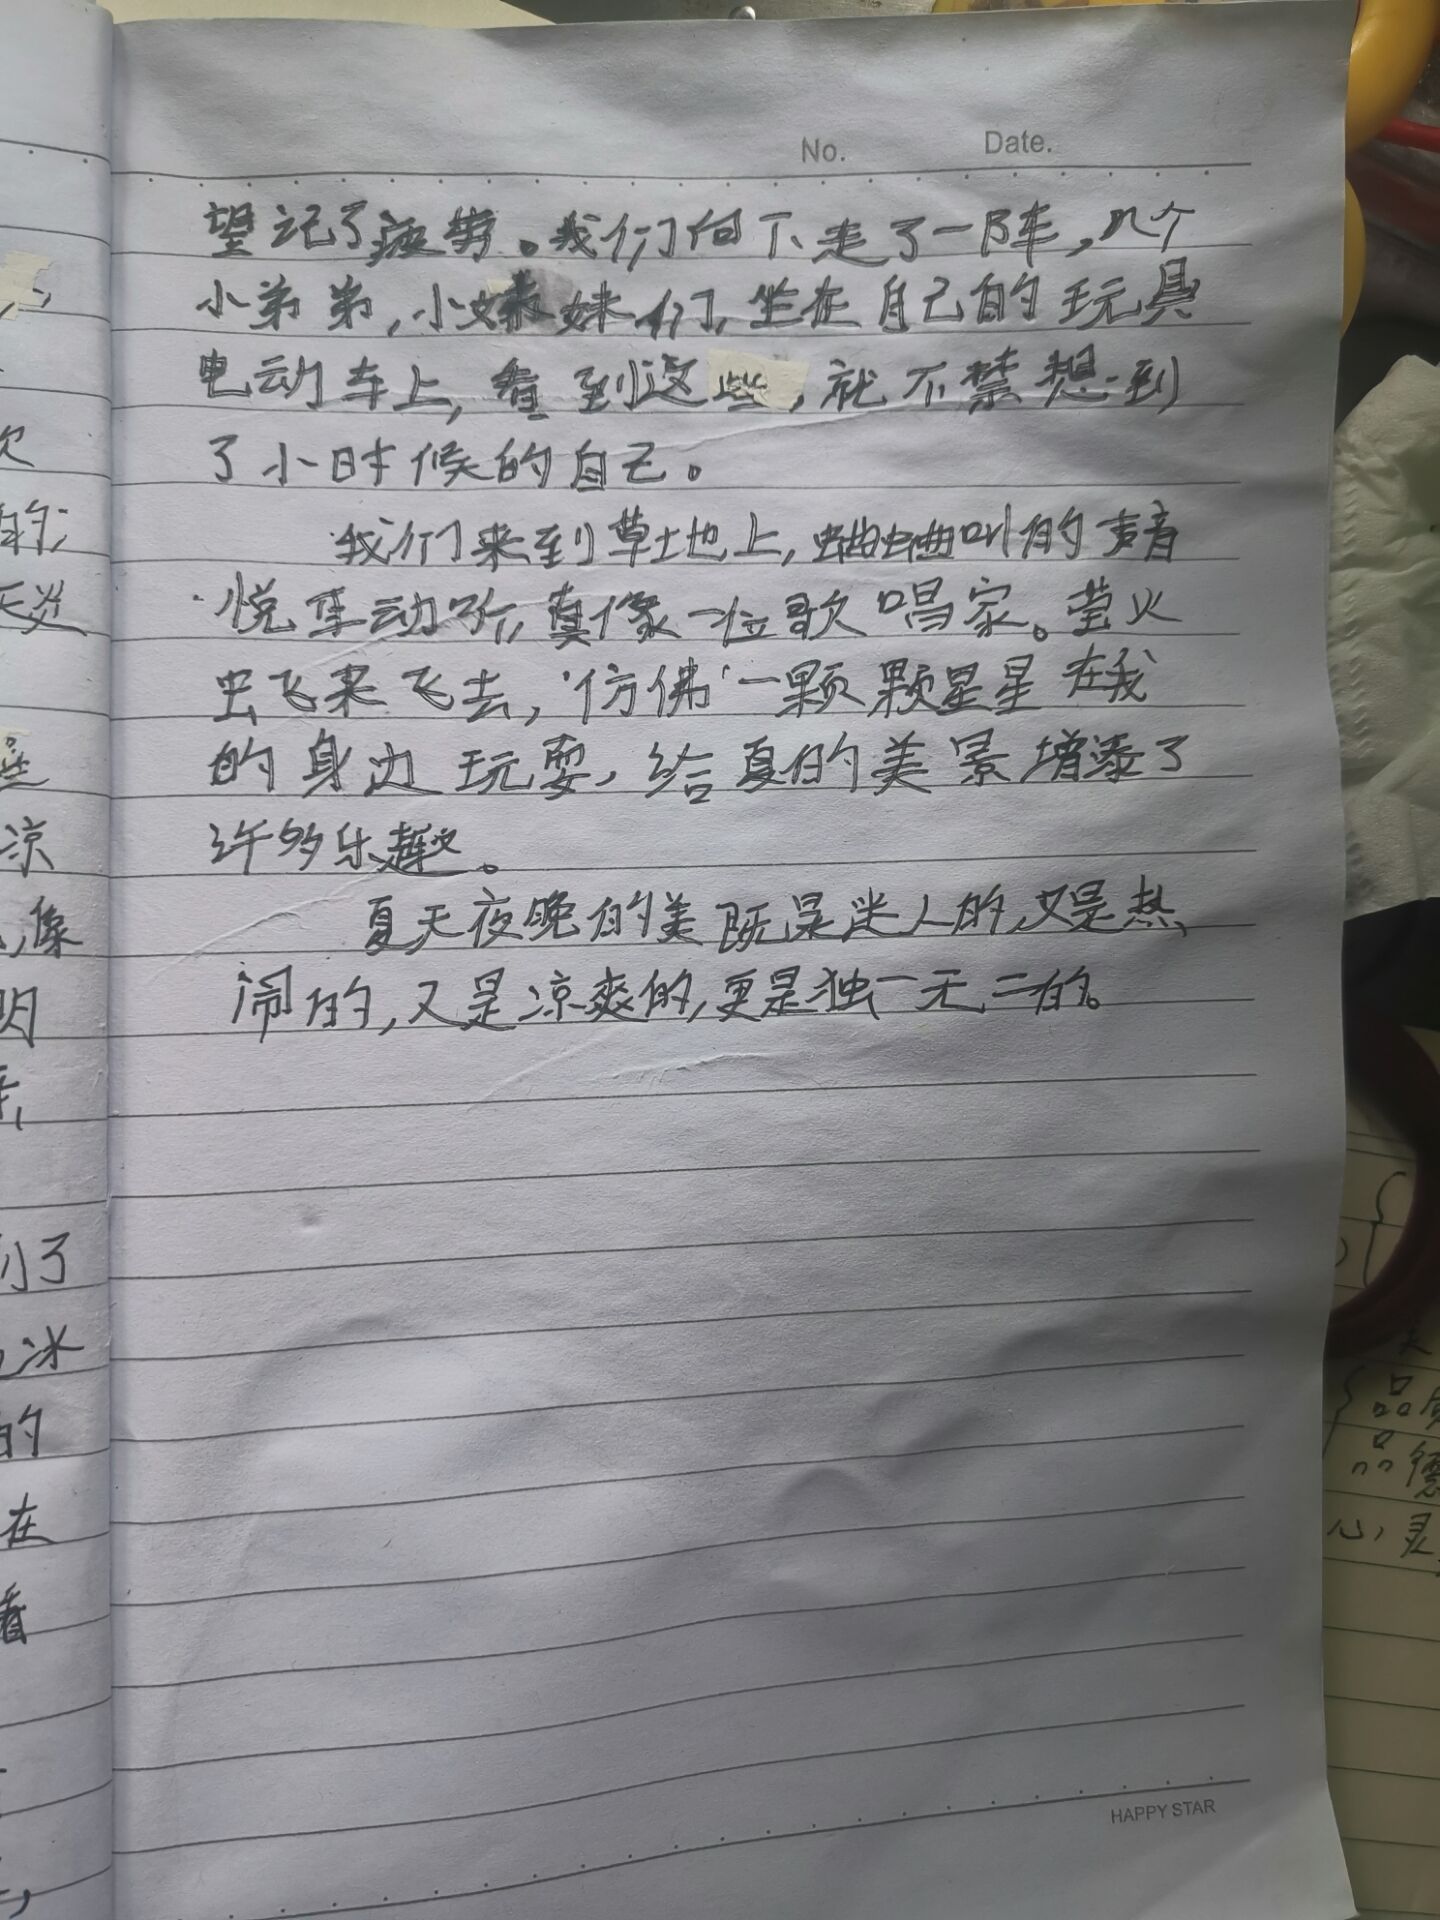 No. Date.
望记了疲劳。我们向下走了一阵，几个
小弟弟，小妹妹们，坐在自己的玩具
电动车上，看到这些，就不禁想到
了小时候的自己。
我们来到草地上，蛐蛐叫的声音
悦耳动听，真像一位歌唱家。萤火
虫飞来飞去，仿佛一颗颗星星在我
的身边玩耍，给夏的美景增添了
许多乐趣。
夏天夜晚的美既是迷人的，又是热
闹的，又是凉爽的，更是独一无二的。
HAPPY STAR
欠
的；
凉
像
明
到了
冰
的
在
看
品
品德
心灵